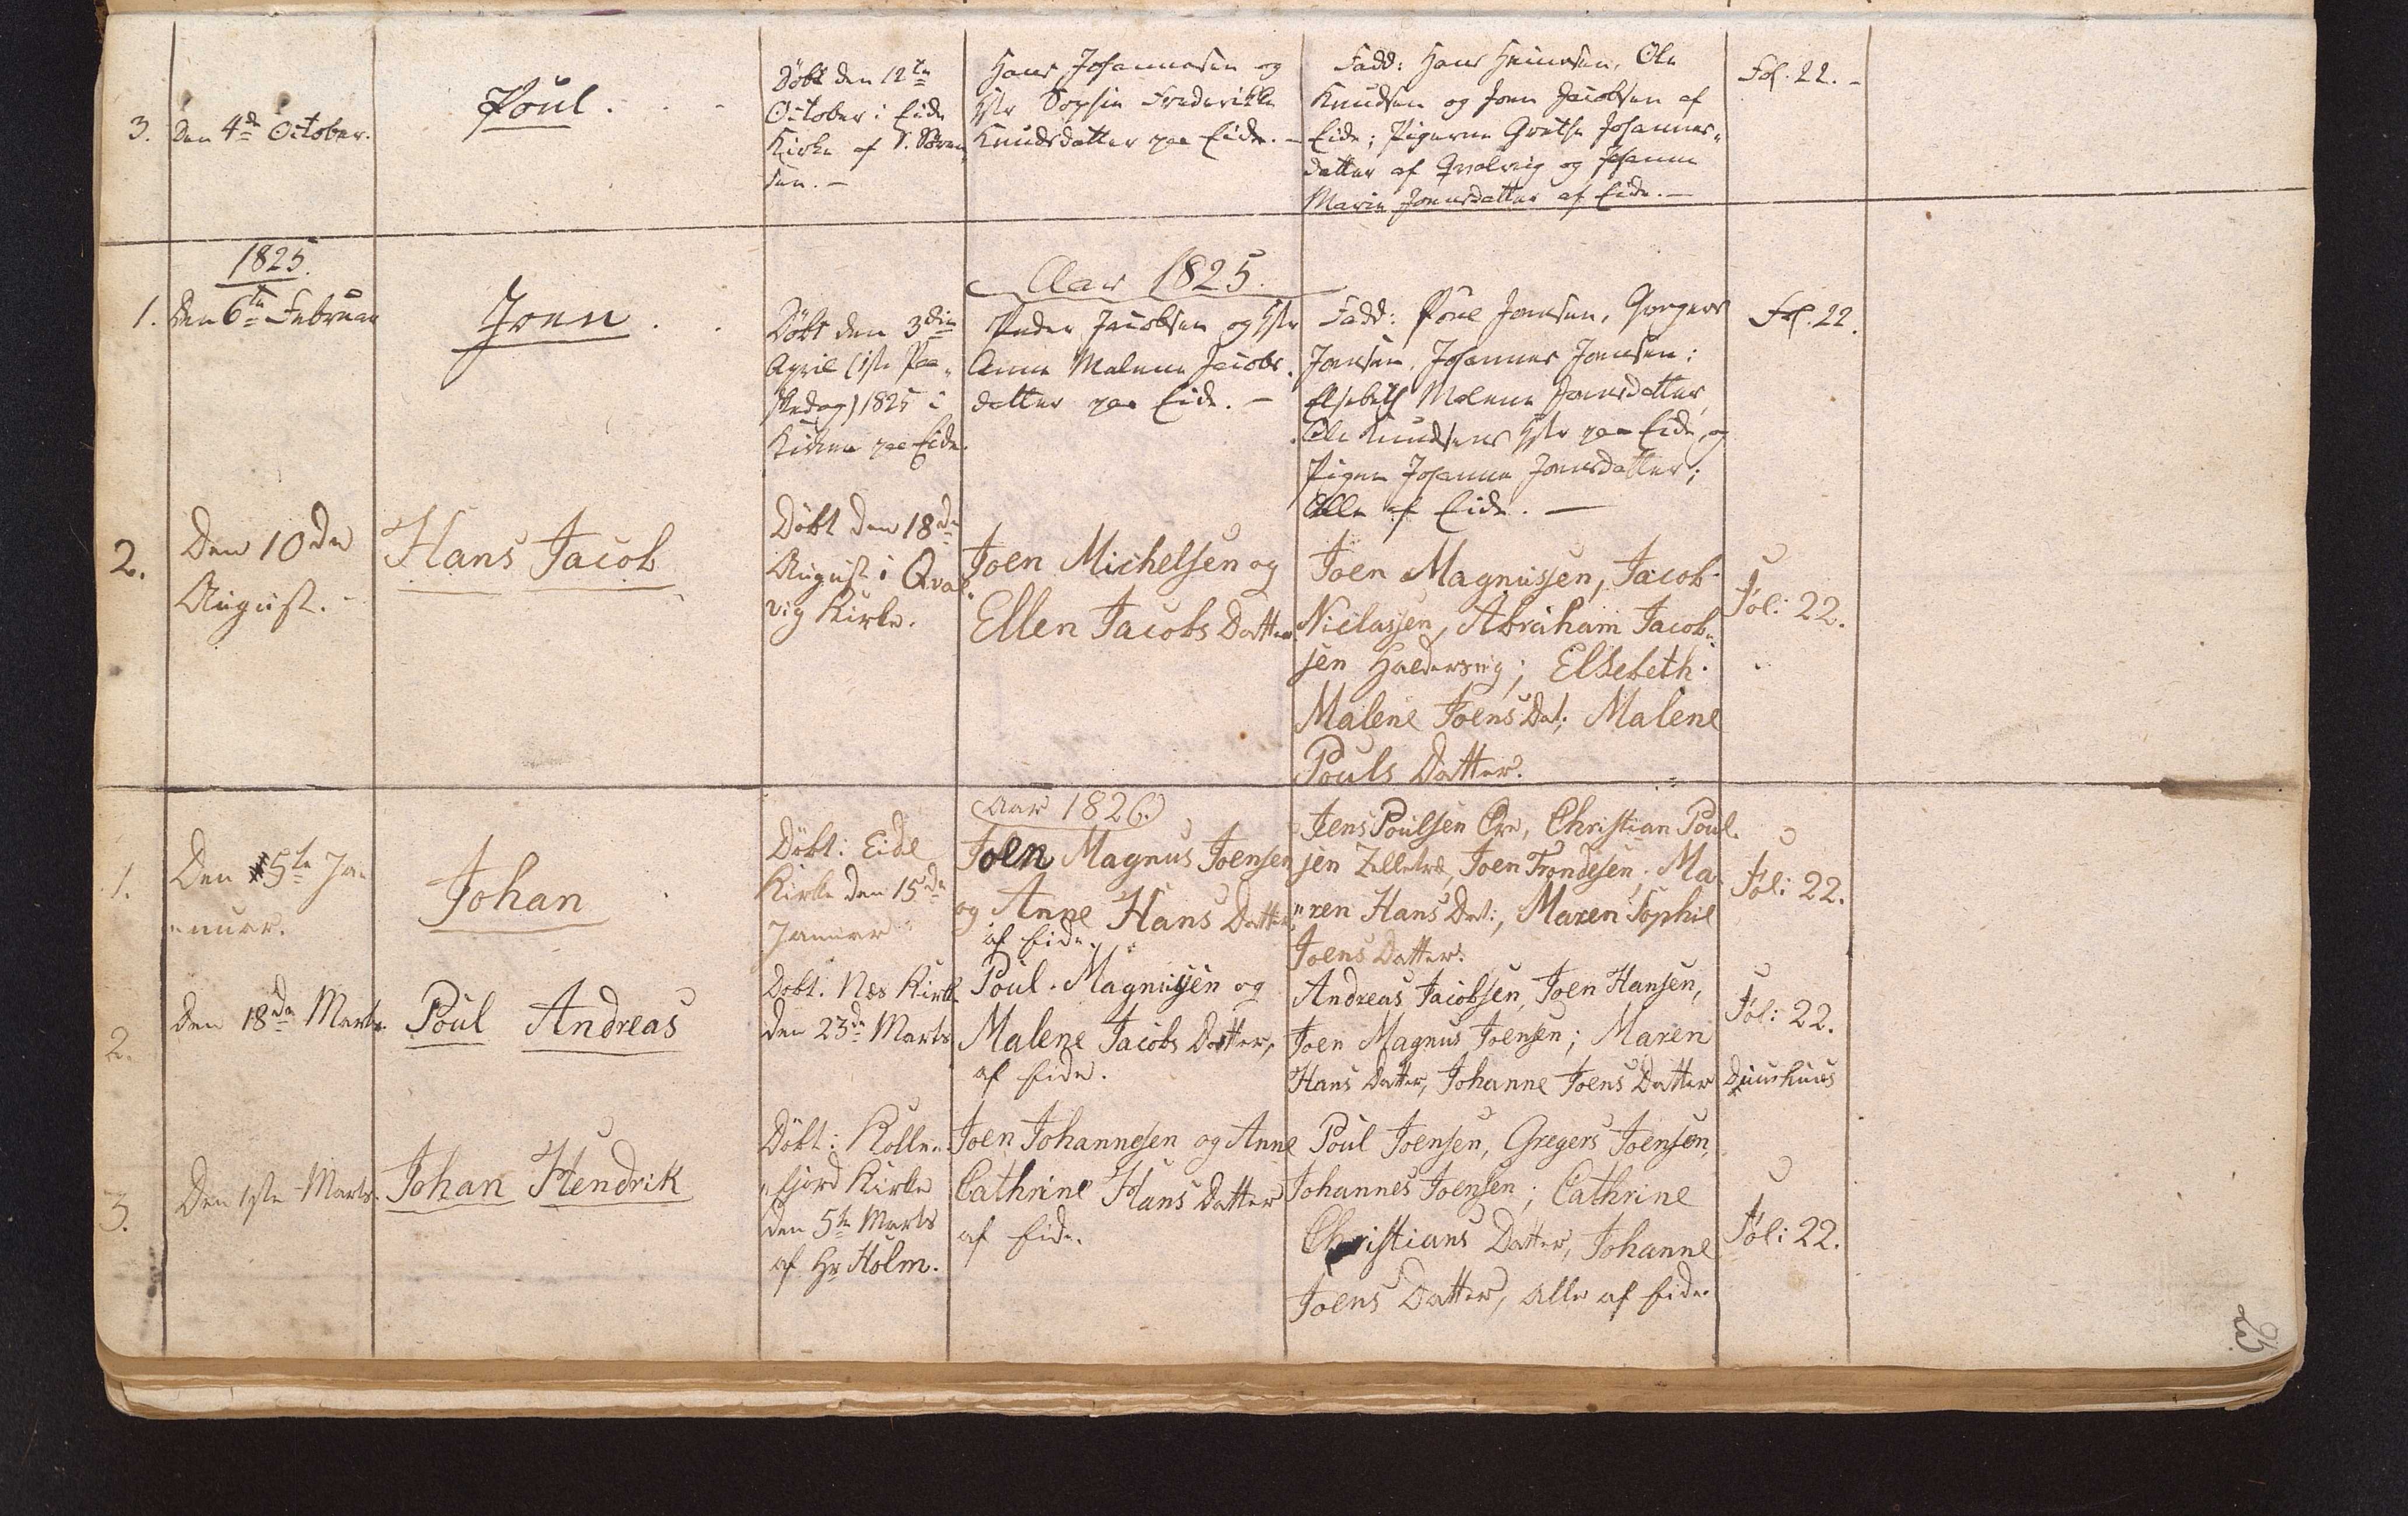 3.
Den 4de October.
Poul.
Døbt den 12te
October i Eide
Kirke af S. Søren„
sen. —
Hans Johannesen og
Hstr Sophie Frederikke
Knudsdatter paa Eide. —
Fadd: Hans Heinesen, Ole
Knudsen og Joen Jacobsen af
Eide; Pigerne Grethe Johannes„
datter af Qvalvig og Johanne
Marie Joensdatter af Eide. —
Fol. 22. -
1825.
1.
Den 6te Februar
Joen.
Døbt den 3die
April (1ste Paa„
skedag) 1825 i
Kirken paa Eide.
Aar 1825.
Peder Jacobsen og Hstr
Anne Malene Jacobs„
datter paa Eide. —
Fadd: Poul Joensen, Gregers
Joensen, Johannes Joensen;
Elsebeth Malene Joensdatter,
Ole Knudsens Hstr paa Eide, og
Pigen Johanne Joensdatter;
Alle af Eide. —
Fol. 22.
2.
Den 10de
August.
Hans Jacob
Døbt den 18de
August i Qval„
vig Kirke.
Joen Michelsen og
Ellen Jacobs Datter
Joen Magnussen, Jacob
Niclassen, Abraham Jacob„
sen Haldersvig; Elsebeth
Malene Joens Dat; Malene
Pouls Datter.
Fol: 22.
Aar 1826.
1.
Den 5te Ja„
„nuar.
Johan
Døbt: Eide
Kirke den 15de
Januar
Joen Magnus Joensen
og Anne Hans Datter,
af Eide.
Jens Poulsen Øre, Christian Poul„
sen Zelletræ, Joen Trondesen; Ma„
„ren Hans Dat:, Maren Sophie
Joens Datter.
Fol: 22.
2.
Den 18de Marts.
Poul Andreas
Døbt: Næs Kirke
den 23de Marts
Poul Magnussen og
Malene Jacobs Datter,
af Eide.
Andreas Jacobsen, Joen Hansen,
Joen Magnus Joensen; Maren
Hans Datter, Johanne Joens Datter
Fol: 22.
Duurhuus
3.
Den 1ste Marts.
Johan Hendrik
Døbt: Kolle„
„fjord Kirke
den 5te Marts
af Hr Holm.
Joen Johannesen og Anne
Cathrine Hans Datter
af Eide.
Poul Joensen, Gregers Joensen,
Johannes Joensen; Cathrine
Christians Datter, Johanne
Joens Datter, alle af Eide.
Fol: 22.